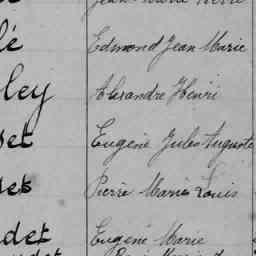 Jean Marie
lé Edmond Jean Marie
ley Alexandre Henri
set Eugène Jules Auguste
des Pierre Marie Louis
det Eugène Marie